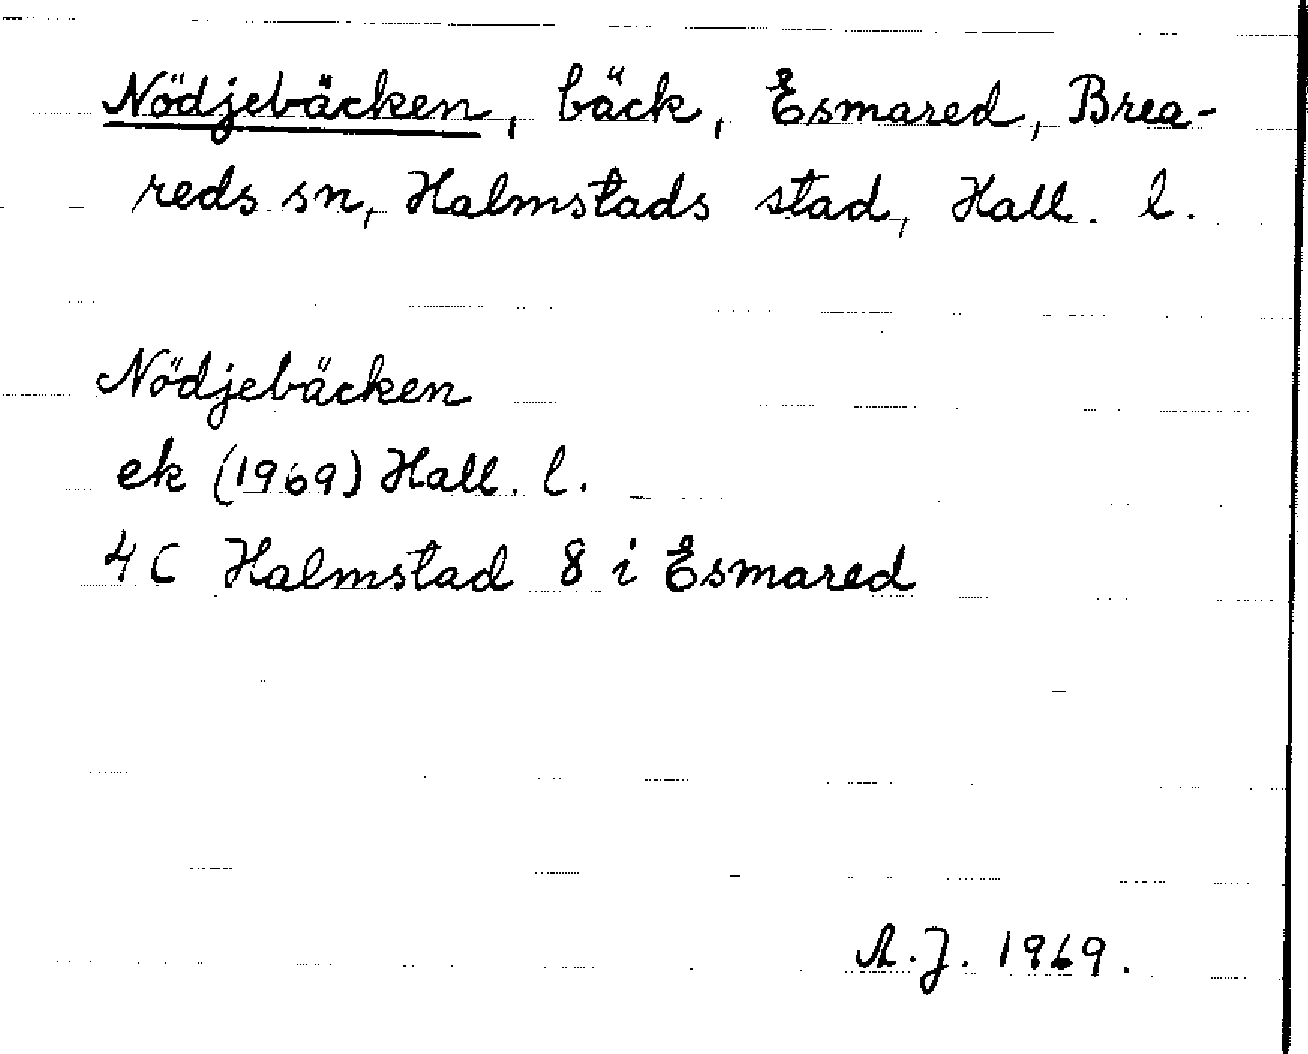 Nödjebäcken, bäck, Esmared, Brea-
reds sn, Halmstads stad, Hall. l.
Nödjebäcken
ek (1969) Hall. l.
4C Halmstad 8 i Esmared
A.J. 1969.